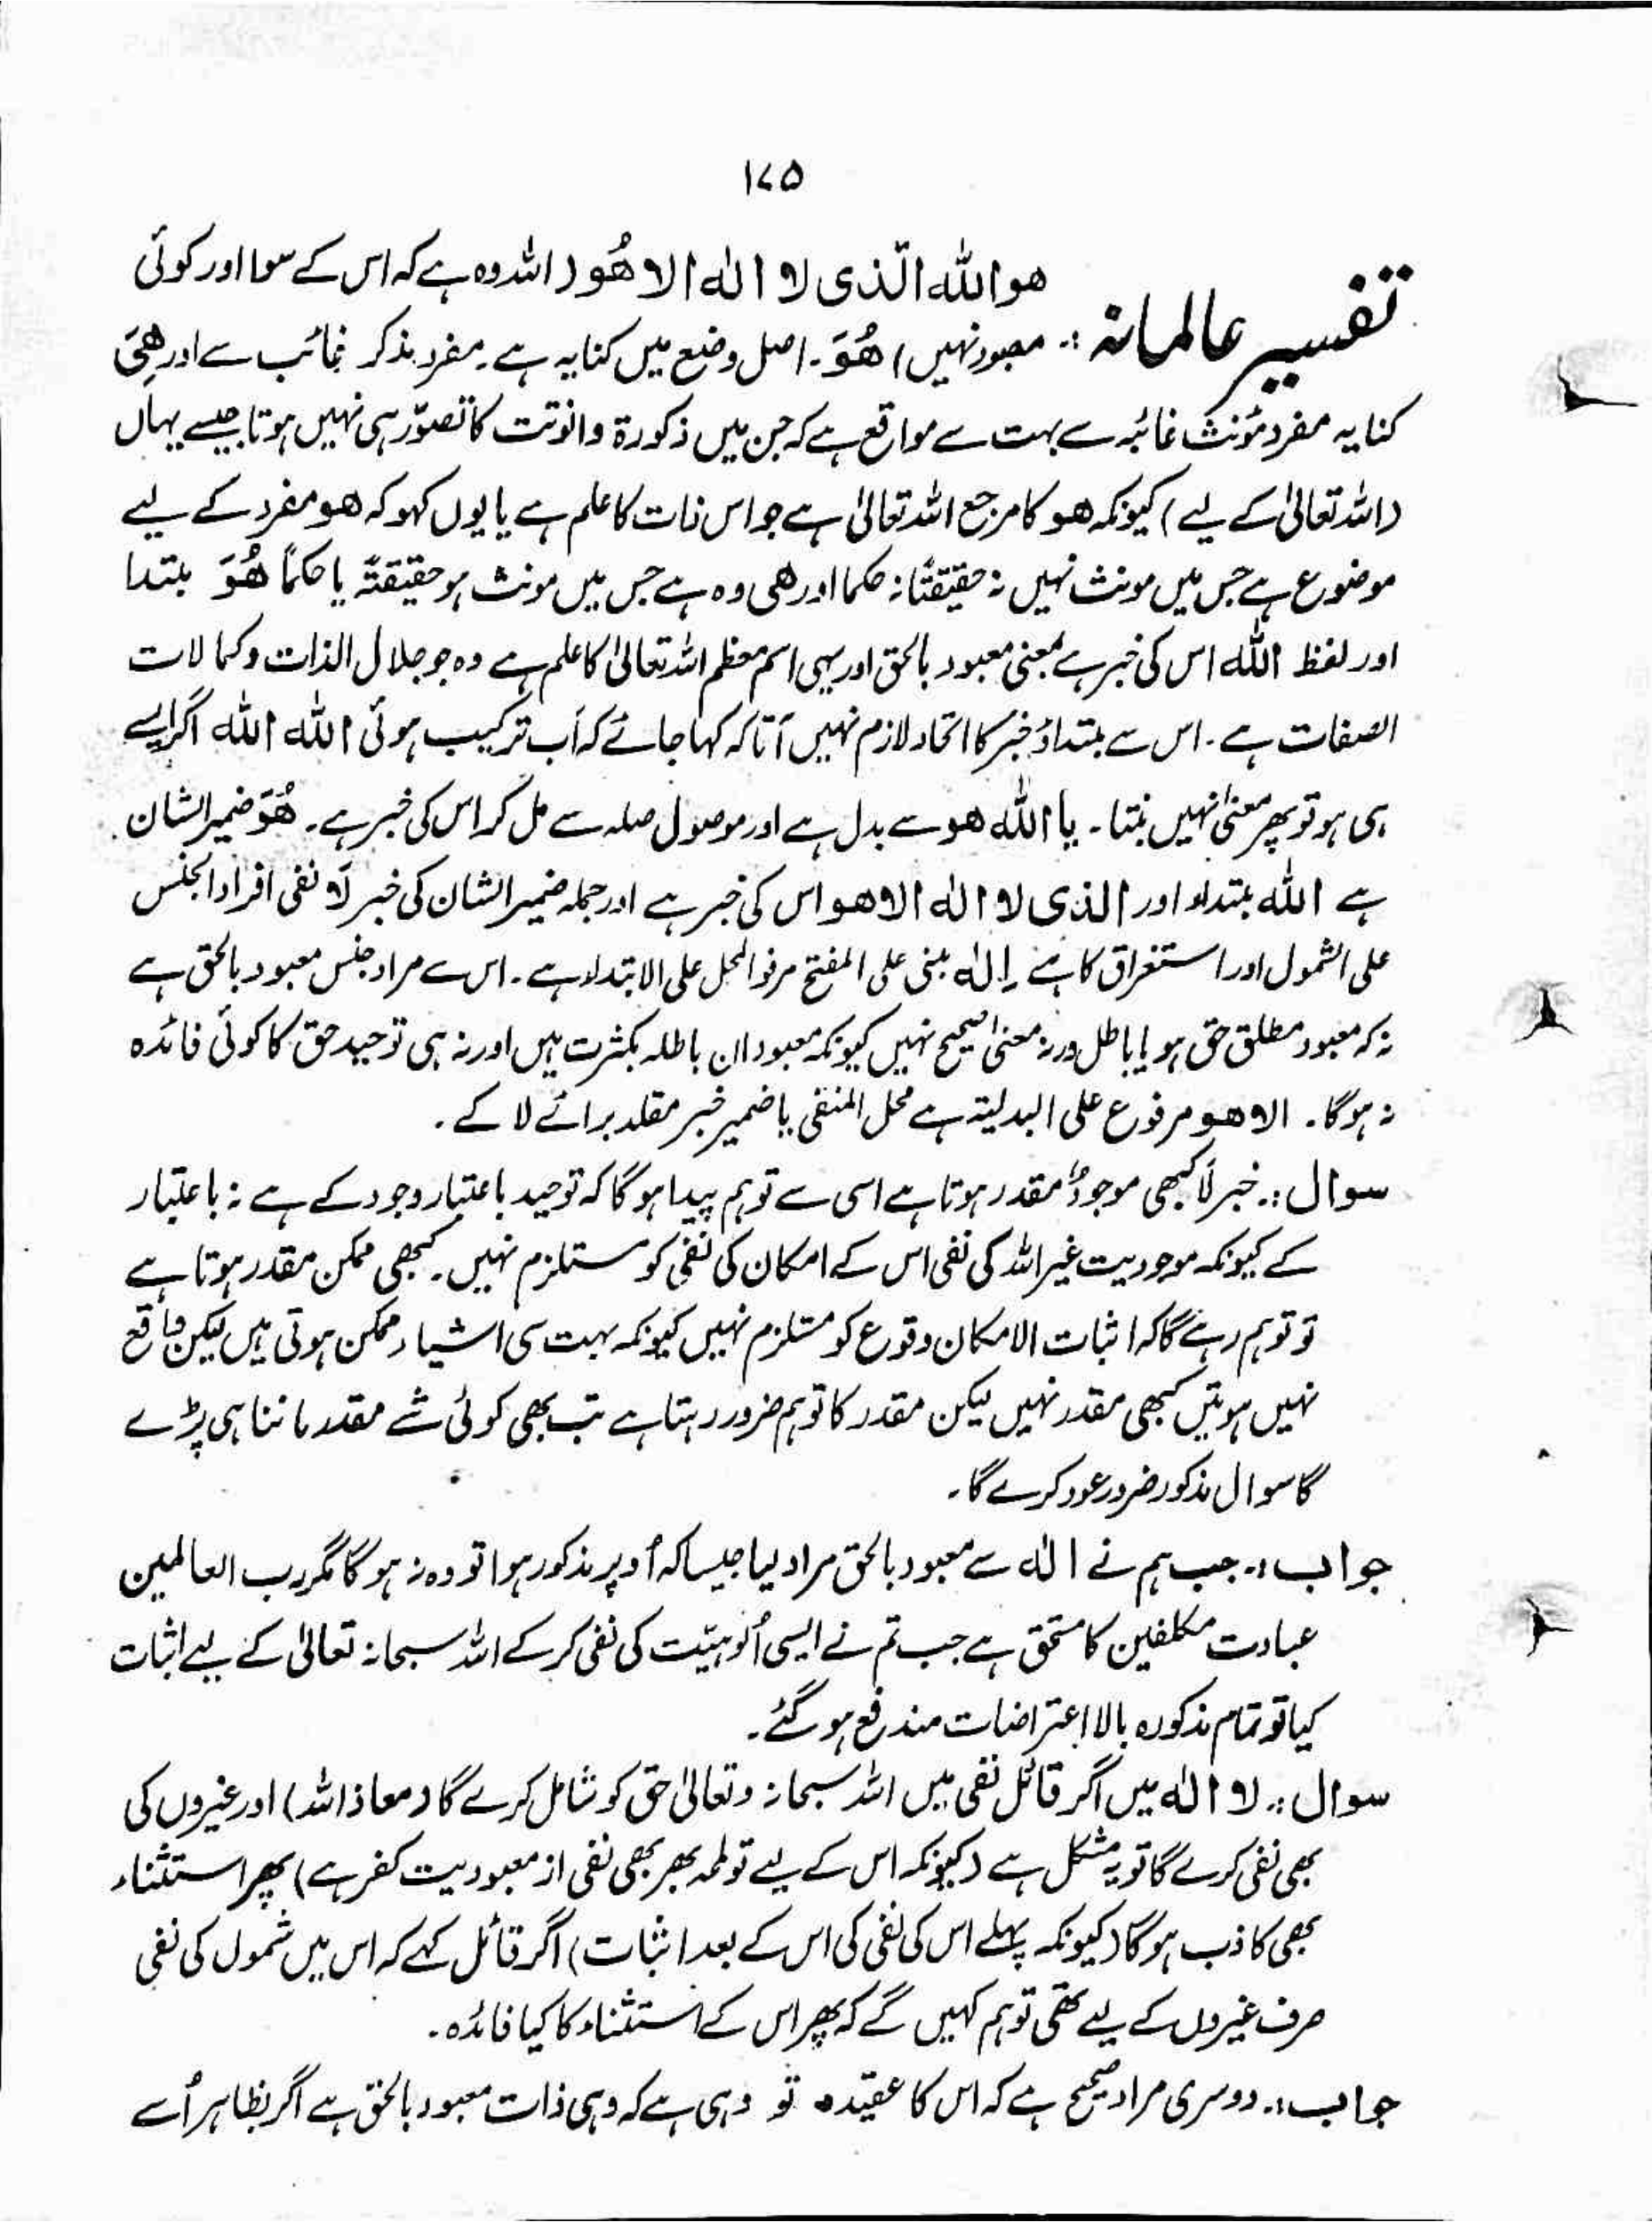 ۱۷۵
ھو اللہ الّذی لا الٰہ الا ھُو (اللہ وہ ہے کہ اس کے سوا اور کوئی
تفسیر عالمانہ :۔ معبود نہیں) ھُوَ۔ اصل وضع میں کنایہ ہے۔ مفرد مذکر غائب سے اور ھِیَ
کنایہ مفرد مؤنث غائبہ سے بہت سے مواقع ہے کہ جن میں ذکورۃ وانوثت کا تصوّر ہی نہیں ہوتا جیسے یہاں
(اللہ تعالیٰ کے لیے) کیونکہ ھو کا مرجع اللہ تعالیٰ ہے جو اس ذات کا علم ہے یا یوں کہو کہ ھو مفرد کے لیے
موضوع ہے جس میں مونث نہیں نہ حقیقتًا نہ حکما اور ھی وہ ہے جس میں مونث ہو حقیقتہً یا حکمًا ھُوَ مبتدا
اور لفظ اللّٰہ اس کی خبر ہے بمعنی معبود بالحق اور یہی اسم معظم اللہ تعالیٰ کا علم ہے وہ جو جلال الذات وکمالات
الصفات ہے۔ اس سے مبتداؤ خبر کا اتحاد لازم نہیں آتا کہ کہا جائے کہ اَب ترکیب ہوئی اللہ اللہ اگر ایسے
ہی ہو تو پھر معنیٰ نہیں بنتا۔ یا اللّٰہ ھو سے بدل ہے اور موصول صلہ سے مل کر اس کی خبر ہے۔ ھُوَ ضمیر الشان
ہے اللّٰہ مبتداء اور الذی لا الٰہ الا ھو اس کی خبر ہے اور جملہ ضمیر الشان کی خبر لَا نفی افراد الجنس
علی الشمول اور استغراق کا ہے اِلٰہ مبنی علی المفتح مرفوالمحل علی الابتداء ہے۔ اس سے مراد جنس معبود بالحق ہے
نہ کہ معبود مطلق حق ہو یا باطل ورنہ معنیٰ صحیح نہیں کیونکہ معبودان باطلہ بکثرت ہیں اور نہ ہی توحید حق کا کوئی فائدہ
نہ ہوگا۔ الا ھو مرفوع علی البدلیتہ ہے محل المنفی یا ضمیر خبر مقلد برائے لا کے۔
سوال :۔ خبر لَا کبھی موجودٌ مقدر ہوتا ہے اسی سے توہم پیدا ہوگا کہ توحید باعتبار وجود کے ہے نہ باعتبار
کے کیونکہ موجودیت غیر اللہ کی نفی اس کے امکان کی نفی کو مستلزم نہیں۔ کبھی ممکن مقدر ہوتا ہے
تو توہم رہے گا کہ اثبات الامکان وقوع کو مستلزم نہیں کیونکہ بہت سی اشیاء ممکن ہوتی ہیں لیکن واقع
نہیں ہوتیں کبھی مقدر نہیں لیکن مقدر کا توہم ضرور رہتا ہے تب بھی کوئی شے مقدر ماننا ہی پڑے
گا سوال مذکور ضرور عود کرے گا۔
جواب :۔ جب ہم نے الٰہ سے معبود بالحق مراد لیا جیسا کہ اُوپر مذکور ہوا تو وہ نہ ہوگا مگر رب العالمین
عبادت مکلفین کا مستحق ہے جب تم نے ایسی اُلوہیّت کی نفی کر کے اللہ سبحانہ تعالیٰ کے لیے اثبات
کیا تو تمام مذکورہ بالا اعتراضات مندفع ہو گئے۔
سوال :۔ لا الٰہ میں اگر قائل نفی میں اللہ سبحانہ وتعالیٰ حق کو شامل کرے گا (معاذ اللہ) اور غیروں کی
بھی نفی کرے گا تو یہ مشکل ہے (کیونکہ اس کے لیے تو لمحہ بھر بھی نفی از معبودیت کفر ہے) پھر استثناء
بھی کاذب ہوگا (کیونکہ پہلے اس کی نفی کی اس کے بعد اثبات) اگر قائل کہے کہ اس میں شمول کی نفی
صرف غیروں کے لیے تھی تو ہم کہیں گے کہ پھر اس کے استثناء کا کیا فائدہ۔
جواب :۔ دوسری مراد صحیح ہے کہ اس کا عقیدہ تو وہی ہے کہ وہی ذات معبود بالحق ہے اگر بظاہر اُسے